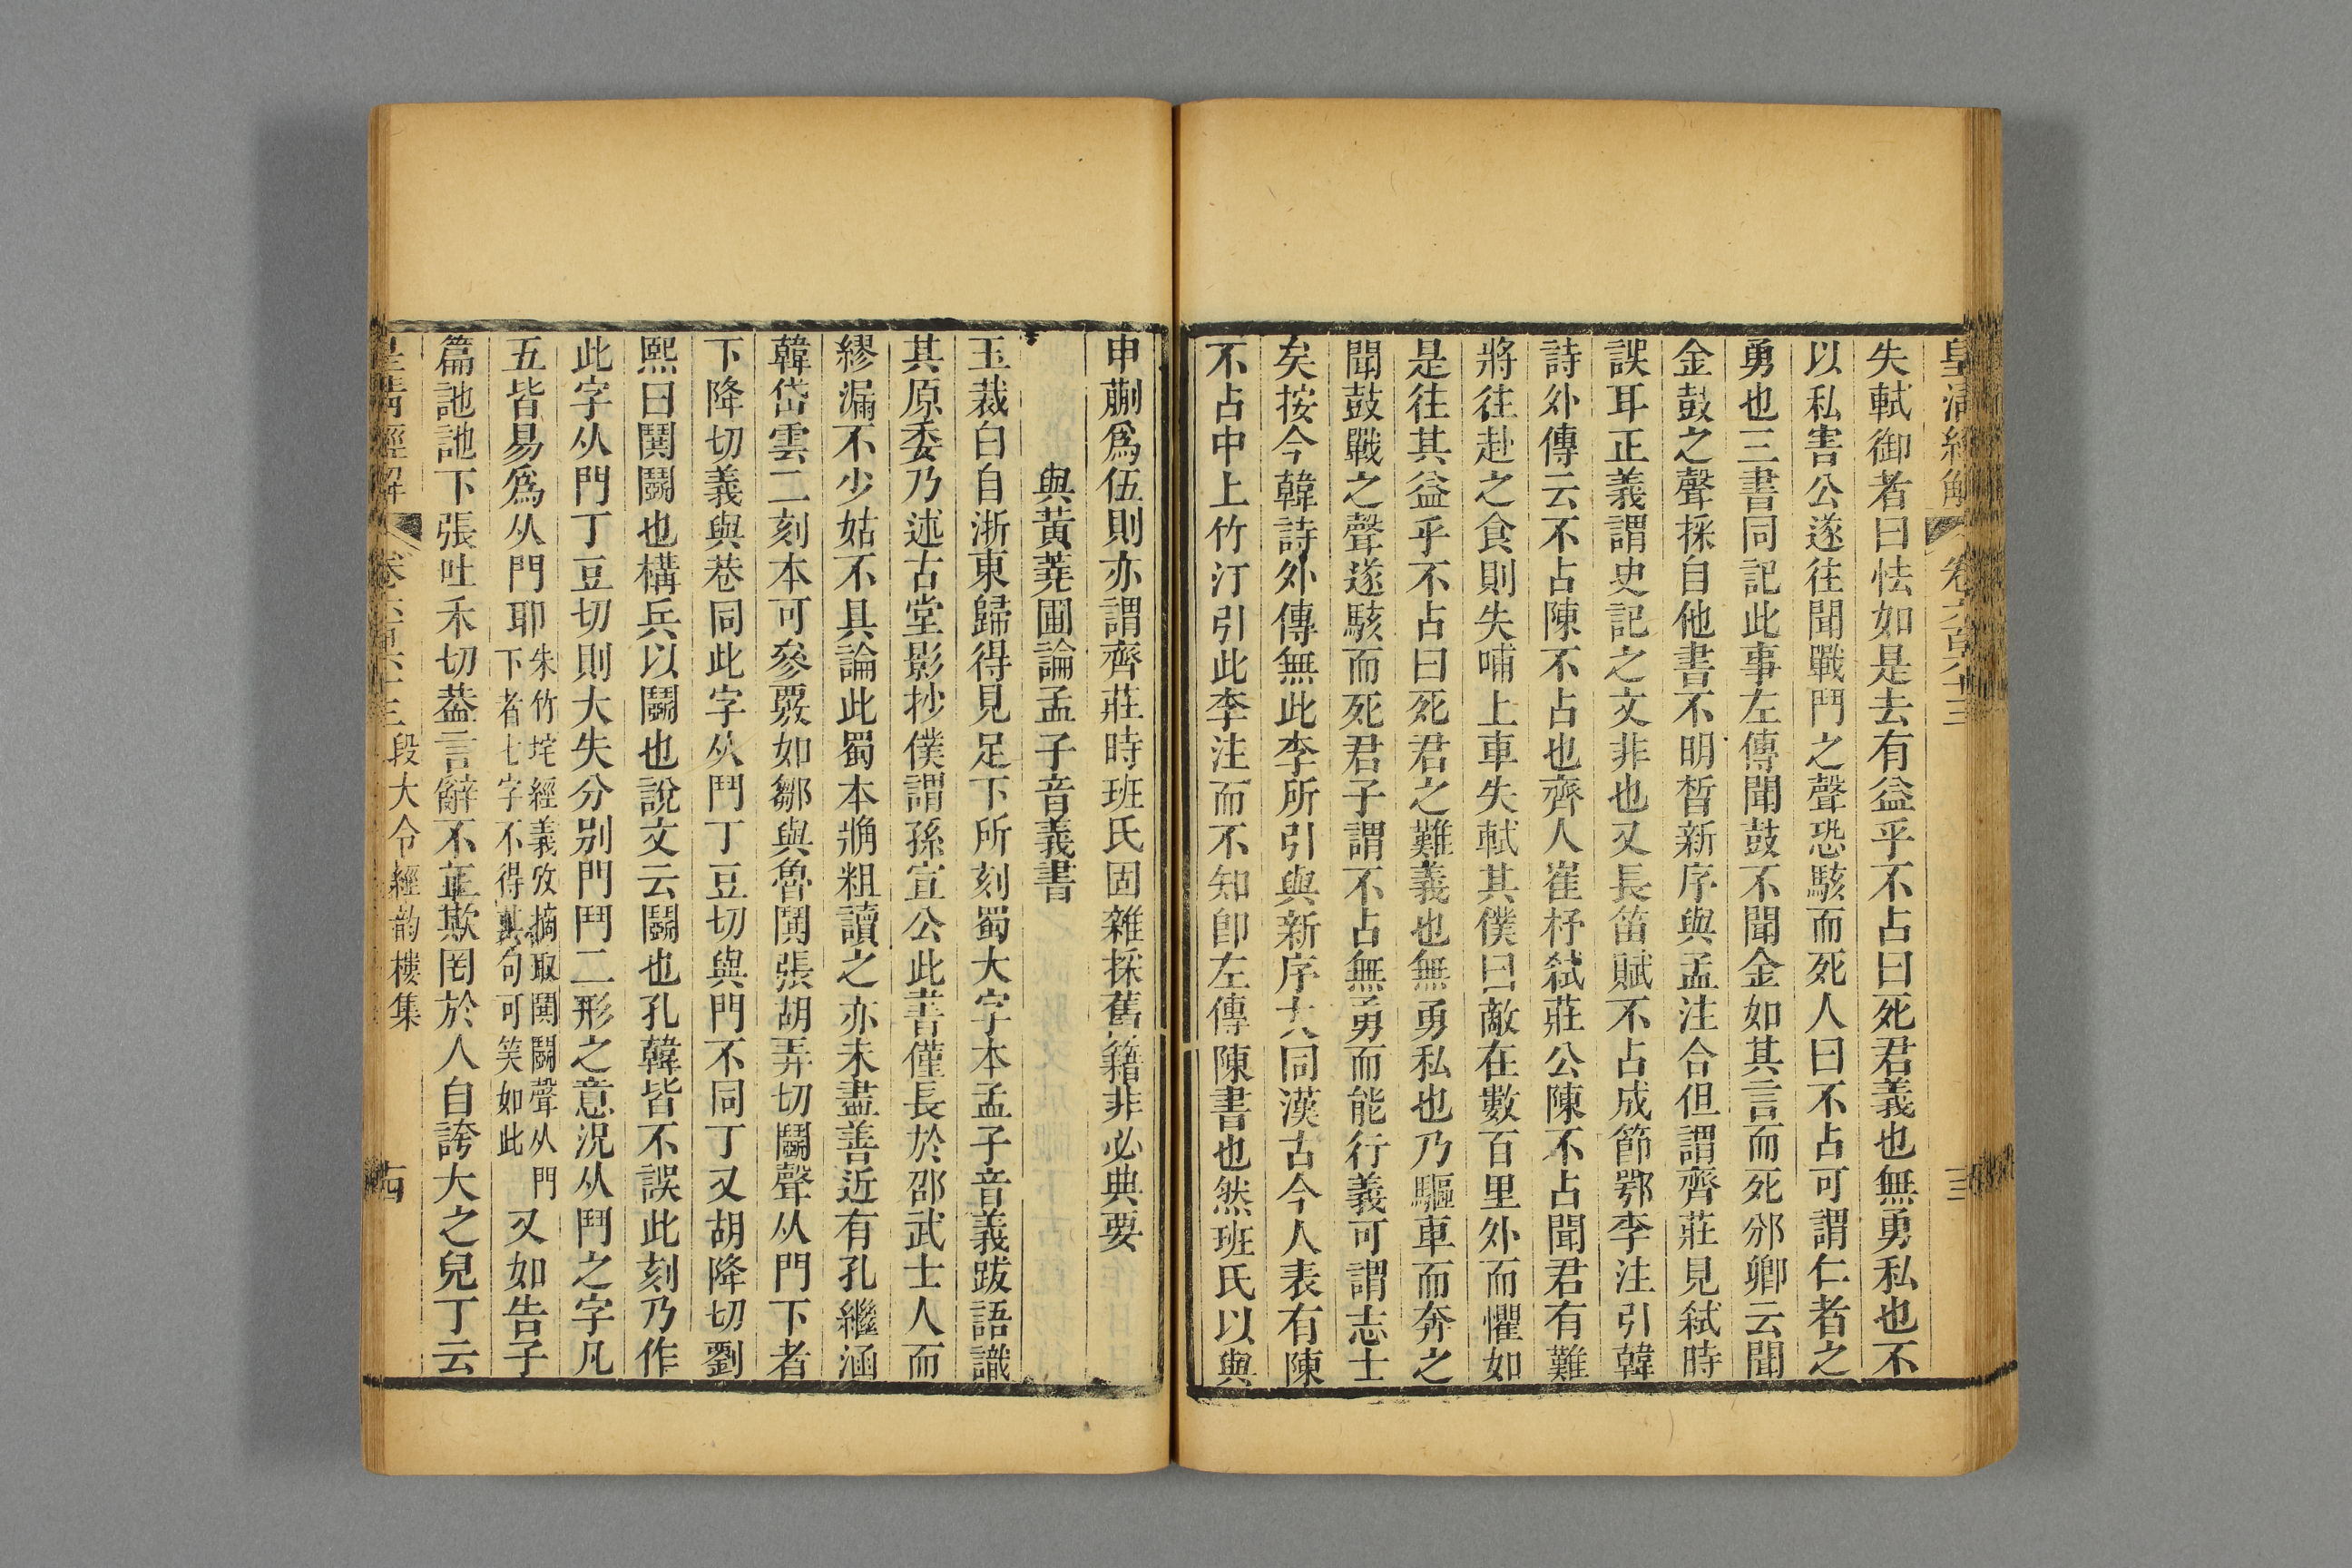 皇清經解 卷六百六十三 三
失軾御者曰怯如是去有益乎不占曰死君義也無勇私也不
以私害公遂往聞戰鬥之聲恐駭而死人曰不占可謂仁者之
勇也三書同記此事左傳聞鼓不聞金如其言而死邠卿云聞
金鼓之聲採自他書不明晳新序與孟注合但謂齊莊見弒時
誤耳正義謂史記之文非也又長笛賦不占成節鄂李注引韓
詩外傳云不占陳不占也齊人崔杼弒莊公陳不占聞君有難
將往赴之食則失哺上車失軾其僕曰敵在數百里外而懼如
是往其益乎不占曰死君之難義也無勇私也乃驅車而奔之
聞鼓戰之聲遂駭而死君子謂不占無勇而能行義可謂志士
矣按今韓詩外傳無此李所引與新序大同漢古今人表有陳
不占中上竹汀引此李注而不知卽左傳陳書也然班氏以與
申蒯爲伍則亦謂齊莊時班氏固雜採舊籍非必典要
與黃蕘圃論孟子音義書
玉裁白自浙東歸得見足下所刻蜀大字本孟子音義跋語識
其原委乃述古堂影抄僕謂孫宣公此書僅長於邵武士人而
繆漏不少姑不具論此蜀本觕粗讀之亦未盡善近有孔繼涵
韓岱雲二刻本可參覈如鄒與魯鬨張胡弄切鬭聲从門下者
下降切義與巷同此字从鬥丁豆切與門不同丁又胡降切劉
熙曰鬨鬭也構兵以鬭也說文云鬭也孔韓皆不誤此刻乃作
此字从門丁豆切則大失分別門鬥二形之意況从鬥之字凡
五皆易爲从門耶朱竹垞經義攷摘取鬨鬭聲从門下者七字不得其句可笑如此又如告子
篇訑訑下張吐禾切葢言辭不正欺罔於人自誇大之皃丁云
皇清經解 卷六百六十三 段大令經韵樓集 十四